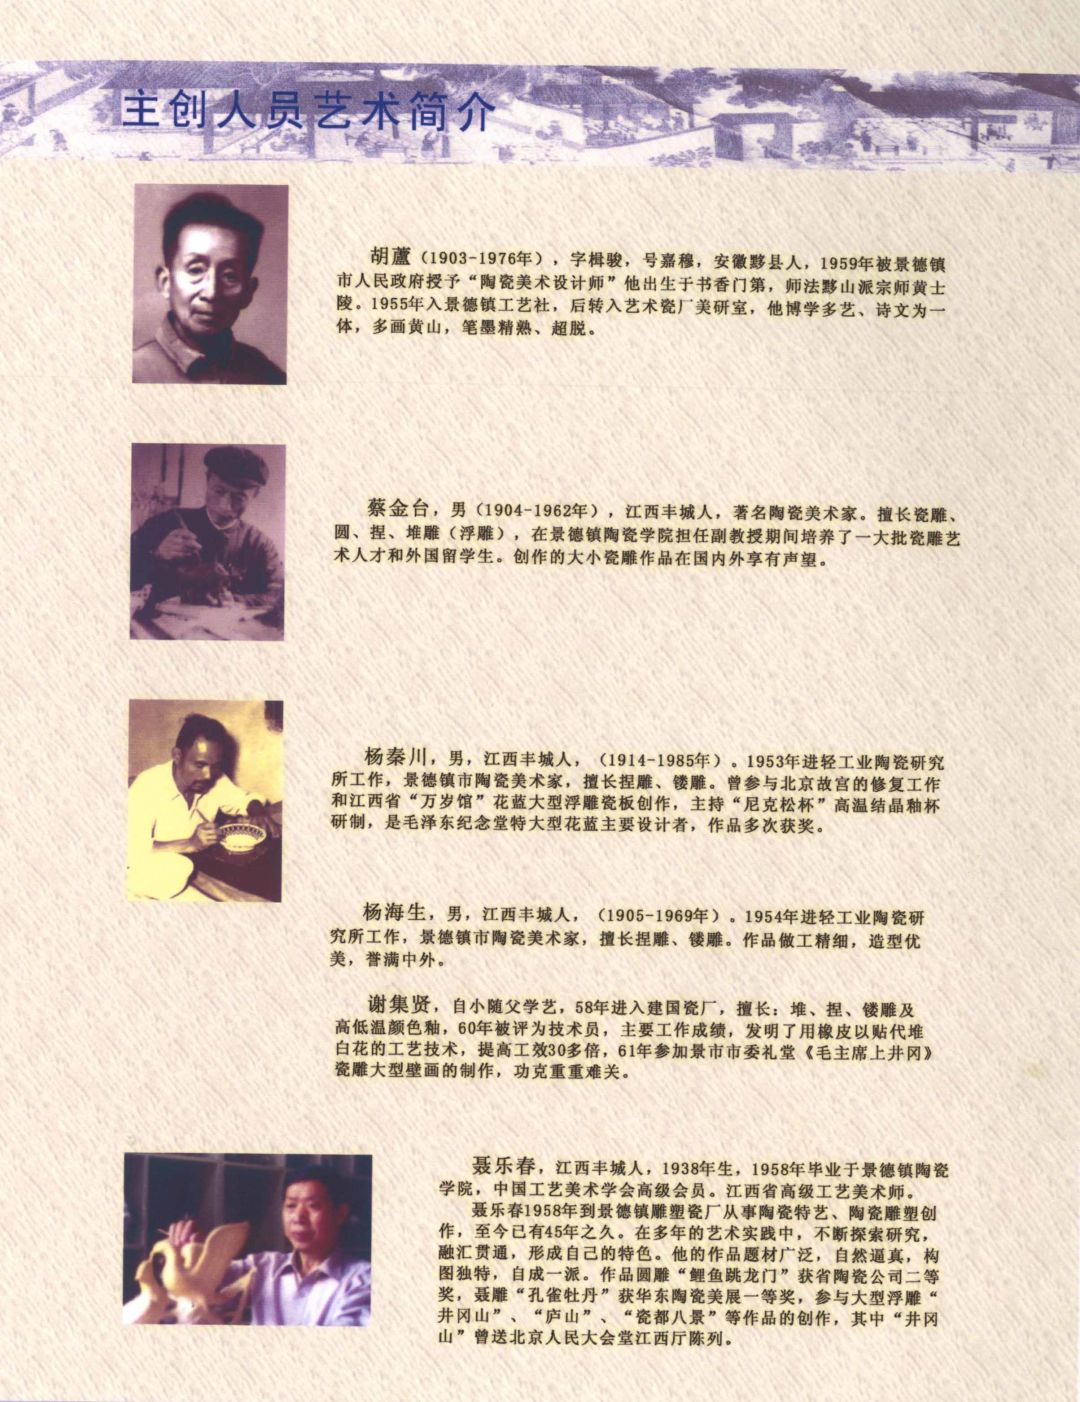 主创人员艺术简介
胡蘆（1903-1976年），字楫骏，号嘉穆，安徽黟县人，1959年被景德镇
市人民政府授予“陶瓷美术设计师”他出生于书香门第，师法黟山派宗师黄士
陵。1955年入景德镇工艺社，后转入艺术瓷厂美研室，他博学多艺、诗文为一
体，多画黄山，笔墨精熟、超脱。
蔡金台，男（1904-1962年），江西丰城人，著名陶瓷美术家。擅长瓷雕、
圆、捏、堆雕（浮雕），在景德镇陶瓷学院担任副教授期间培养了一大批瓷雕艺
术人才和外国留学生。创作的大小瓷雕作品在国内外享有声望。
杨秦川，男，江西丰城人，（1914-1985年）。1953年进轻工业陶瓷研究
所工作，景德镇市陶瓷美术家，擅长捏雕、镂雕。曾参与北京故宫的修复工作
和江西省“万岁馆”花蓝大型浮雕瓷板创作，主持“尼克松杯”高温结晶釉杯
研制，是毛泽东纪念堂特大型花蓝主要设计者，作品多次获奖。
杨海生，男，江西丰城人，（1905-1969年）。1954年进轻工业陶瓷研
究所工作，景德镇市陶瓷美术家，擅长捏雕、镂雕。作品做工精细，造型优
美，誉满中外。
谢集贤，自小随父学艺，58年进入建国瓷厂，擅长：堆、捏、镂雕及
高低温颜色釉，60年被评为技术员，主要工作成绩，发明了用橡皮以贴代堆
白花的工艺技术，提高工效30多倍，61年参加景市市委礼堂《毛主席上井冈》
瓷雕大型壁画的制作，功克重重难关。
聂乐春，江西丰城人，1938年生，1958年毕业于景德镇陶瓷
学院，中国工艺美术学会高级会员。江西省高级工艺美术师。
聂乐春1958年到景德镇雕塑瓷厂从事陶瓷特艺、陶瓷雕塑创
作，至今已有45年之久。在多年的艺术实践中，不断探索研究，
融汇贯通，形成自己的特色。他的作品题材广泛，自然逼真，构
图独特，自成一派。作品圆雕“鲤鱼跳龙门”获省陶瓷公司二等
奖，聂雕“孔雀牡丹”获华东陶瓷美展一等奖，参与大型浮雕“
井冈山”、“庐山”、“瓷都八景”等作品的创作，其中“井冈
山”曾送北京人民大会堂江西厅陈列。